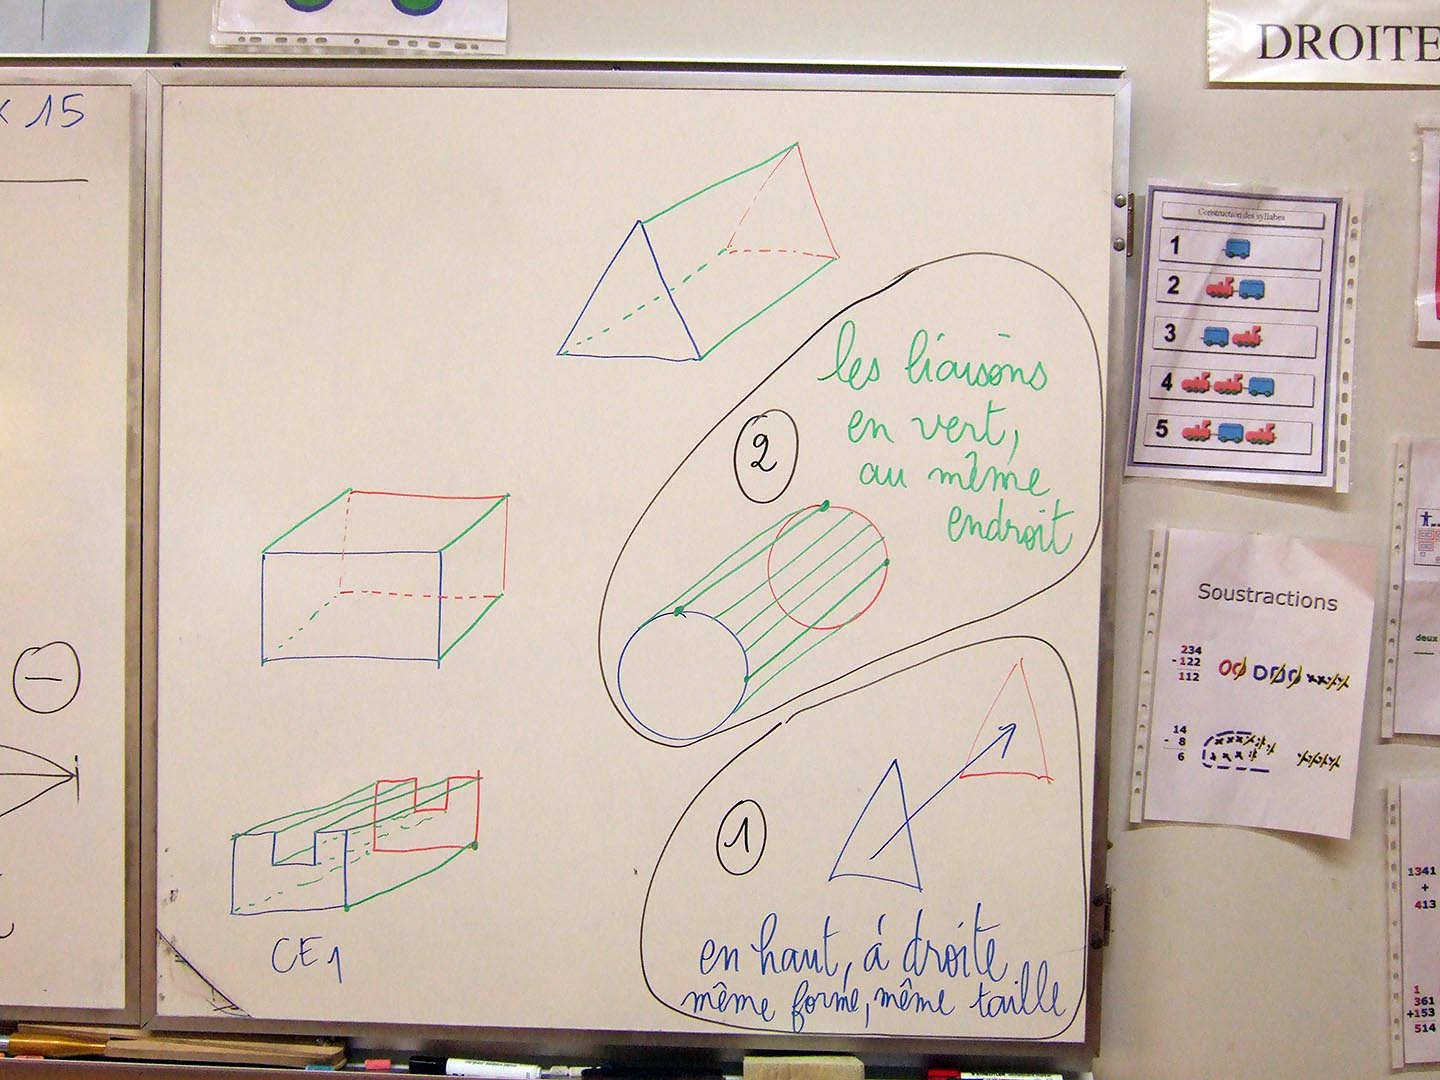 x 15
DROITE
les liaisons
en vert,
au même
endroit
2
1
en haut, à droite
même forme, même taille
CE1
Construction des syllabes
1
2
3
4
5
Soustractions
234
- 122
112
14
- 8
6
deux
1341
+
413
1
361
+153
514